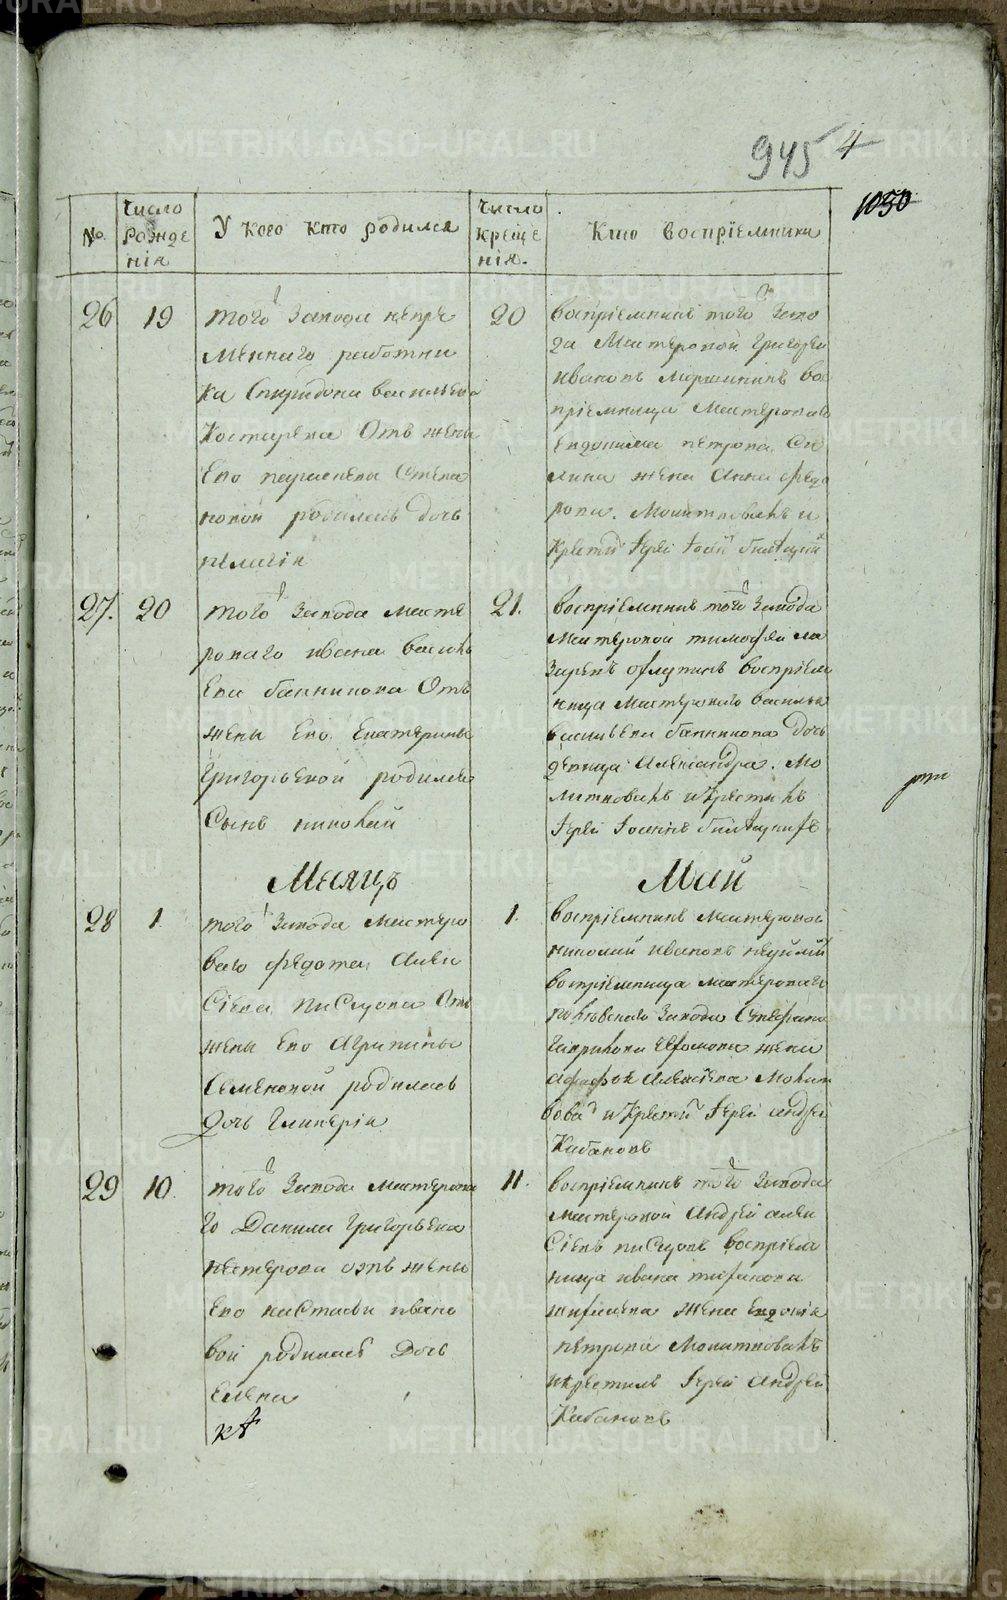 945 4
1050
№.
Число рожде нія
У кого кто родился
Число креще нія.
Кто воспріемники
26 19
того завода непре
меннаго работни
ка Спиридона васильева
Костарева Отъ жены
Его парасковеи Степа
новой родилась дочь
пелагія
20
воспріемникъ того заво
да Мастеровой Григорей
ивановъ Моршининъ вос
пріемница Мастероваго
Евдокима петрова
жена Анна федо
рова. Молитвовалъ и
27. 20
того завода масте
роваго ивана василь
ева банникова Отъ
жены Его Екатерины
Григорьевой родился
Сынъ николай
21.
воспріемникъ того завода
Мастеровой тимофей ла
заревъ воспріем
ница Мастероваго василья
васильева банникова дочь
девица Александра. Мо
литвовалъ и крестилъ
Іерей Іоаннъ
Месяцъ
Май
28 1
того завода Мастеро
ваго федота Алек
сіева писцова Отъ
жены Его Агрипины
Семеновой родилась
Дочь Гликерія
1.
воспріемникъ Мастеровой
николай ивановъ
воспріемница мастероваго
завода Стефана
Гаврилова жена
Алексіева Молит
вовалъ и крестилъ Іерей андрей
Кабаковъ
29 10.
того завода Мастерова
го Данила Григорьева
нестерова отъ жены
Его настасьи ивано
вой родилась Дочь
Елена
11.
воспріемникъ того завода
мастеровой андрей алек
сіевъ писцовъ воспріем
ница ивана
жена Евдокія
петрова Молитвовалъ
икрестилъ Іерей андрей
Кабаковъ
METRIKI.GASO-URAL.RU